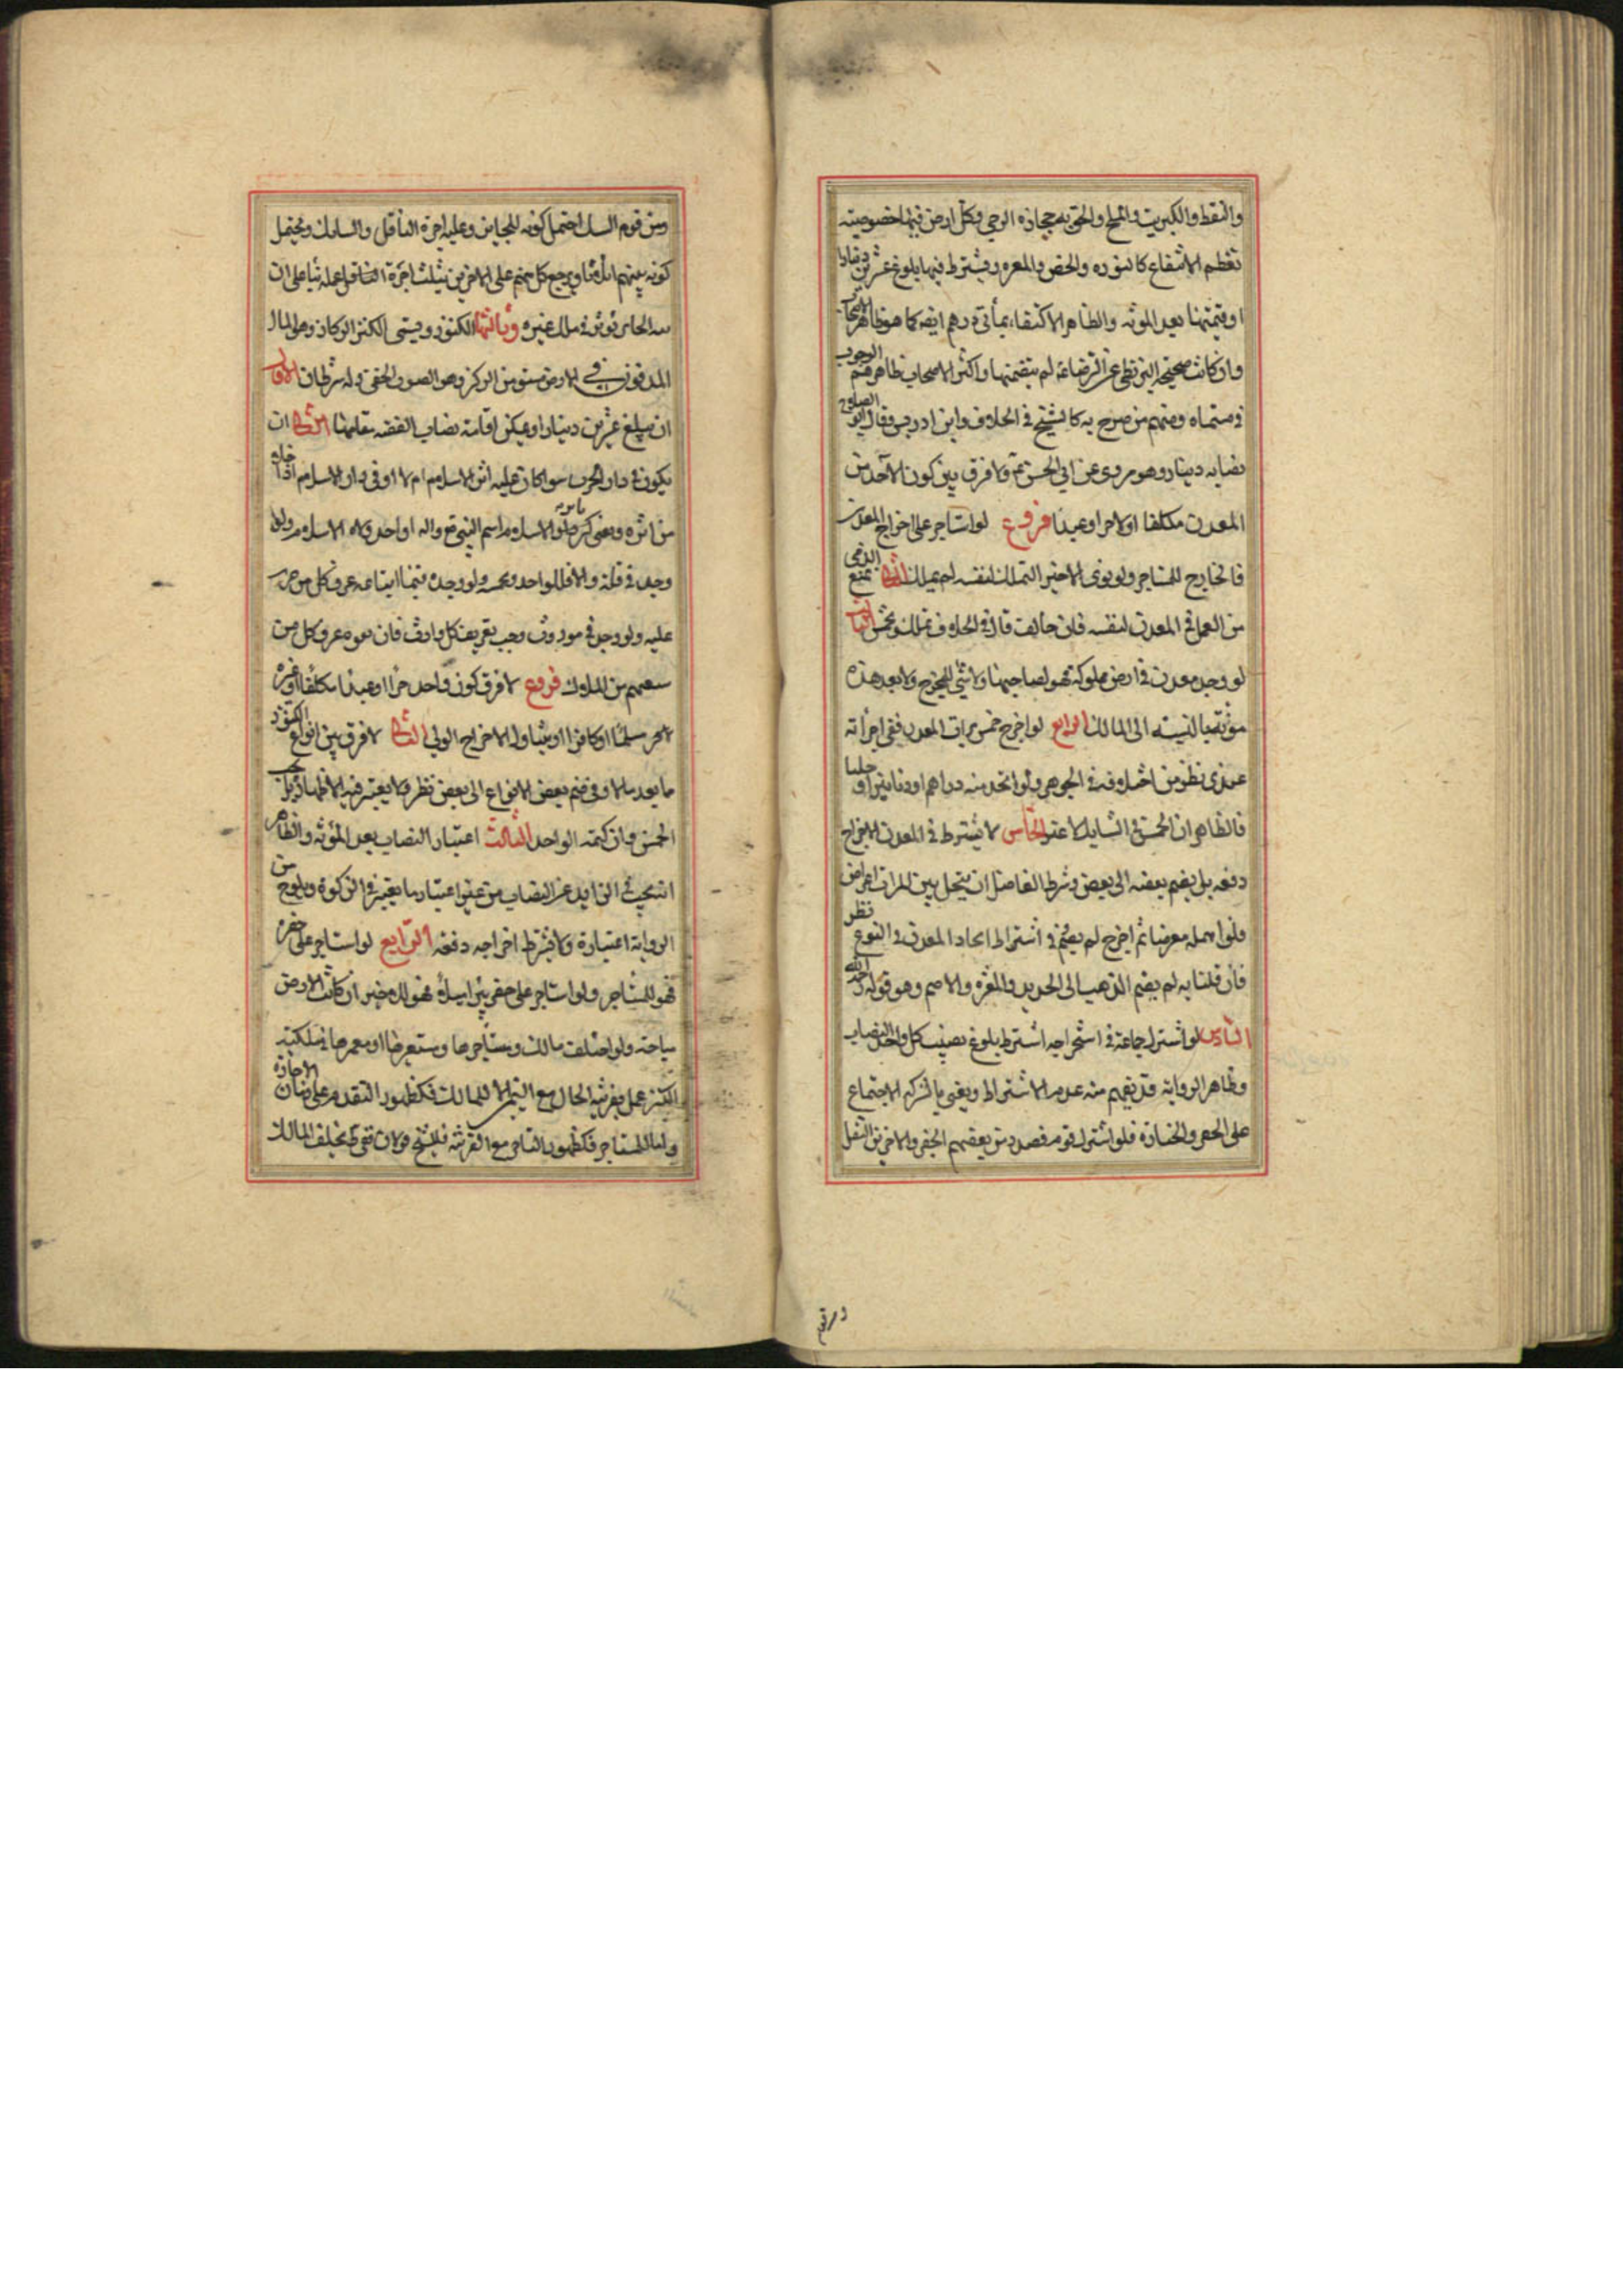 والنفط والكبريت والملح والحق به حجارة الرحى وكل ارض فيها خصوصيته
تعظم الانتفاع كالنوره والجص والمغره ويشترط فيها بلوغ عشرين دينارا
او قيمتها بعد المونه والظاهر الاكتفاء بمأتى درهم ايضه كما هو ظاهر
وان كانت صحيحة البزنطى عن الرضا ع لم يتضمنها واكثر الاصحاب ظاهرهم الوجوب
فى مسماه ومنهم من صرح به كالشيخ فى الخلاف وابن ادريس وقال ابو الصلاح
نصابه دينار وهو مروى عن ابى الحسن ع ولا فرق بين كون الآخذ من
المعدن مكلفا او لا حرا او عبدا فروع لو استاجر على اخراج المعدن
فالخارج للمستاجر ولو نوى الاجير التملك لنفسه لم يملك الثانى يمنع الذمى
من العمل فى المعدن لنفسه فان خالف قال فى الخلاف تملك ويخمس الثالث
لو وجد معدن فى ارض مملوكة فهو لصاحبها ولا شئ للمخرج ولا يعد هذه
مؤنة بالنسبة الى المالك الرابع لو اخرج خمس تراب المعدن ففى اجزائه
عندى نظر من اختلافه فى الجوهر ولو اتخذ منه دراهم او دنانير او حليا
فالظاهر ان الخمس فى السبايك لا غير الخامس لا يشترط فى المعدن الاخراج
دفعه بل يضم بعضه الى بعض وشرط الفاضل ان يتخلل بين المرات اعراض
فلو اهمله معرضا ثم اخرج لم يضم وفى اشتراط اتحاد المعدن فى النوع نظر
فان قلنا به لم يضم الذهب الى الحديد والمغره والاصم وهو قوله رحمه الله
السادس لو اشترك جماعة فى استخراجه اشترط بلوغ نصيب كل واحد النصاب
وظاهر الرواية قد يفهم منه عدم الاشتراط ويعنى بالشركه الاجتماع
على الحفر والحيازه فلو اشترك قوم فصدر من بعضهم الحفر والاخرين النقل
ومن قوم السبك احتمل كونه للحايز وعليه اجرة الناقل والسابك ويحتمل
كونه بينهم اثلاثا ويرجع كل منهم على الاخرين بثلث اجرة
الحايز توثر فى ملك غيره وثالثها الكنوز ويسمى الكنز الركاز وهو المال
المدفون فى الارض مشتق من الركز وهو الصوت الخفى وله شرطان الاول
ان يبلغ عشرين دينارا او يمكن اقامة نصاب الفضه مقامها الثانى ان
يكون فى دار الحرب سوا كان عليه اثر الاسلام ام لا او فى دار الاسلام اذا خلا
من اثره ويعنى الاسلام اسم النبى ص واله او احد ولاه الاسلام ولو
وجد فى فلاة والا فللواحد ويخمسه ولو وجده فيما ابتاعه عرف كل من
عليه ولو وجد فى موروث وجب تعريف كل وارث فان نفوه عرف كل من
سبقهم من الملاك فروع لا فرق كون الواجد حرا او عبدا مكلفا او غيره
مسلما او كافرا الاخراج الولى الثانى لا فرق بين انواع الكنوز
ما يعد مالا وفى ضم بعض الانواع الى بعض نظر ولا يعتبر فيه الاظهار بل يجب
الخمس وان كتمه الواجد الثالث اعتبار النصاب بعد المؤنه والظاهر
انه يجب فى الزايد عن النصاب من غير اعتبار ما يعتبر فى الزكوة ويلوح من
الرواية اعتباره ولا يشترط اخراجه دفعه الرابع لو استاجر على حفره
فهو للمستاجر ولو استاجر على حفر بئر او بناء فهو للاجير ان كانت الارض
مباحة ولو اختلف مالك ومستاجرها ومستعيرها او معيرها فى ملكيته
الكنز عمل بقرينه الحال مع اليمين للمالك فكظهور التقدم على ضمان الاجازه
واما للمستاجر فكظهور التاخر مع القرينه فللشيخ قولان ففى يحلف المالك